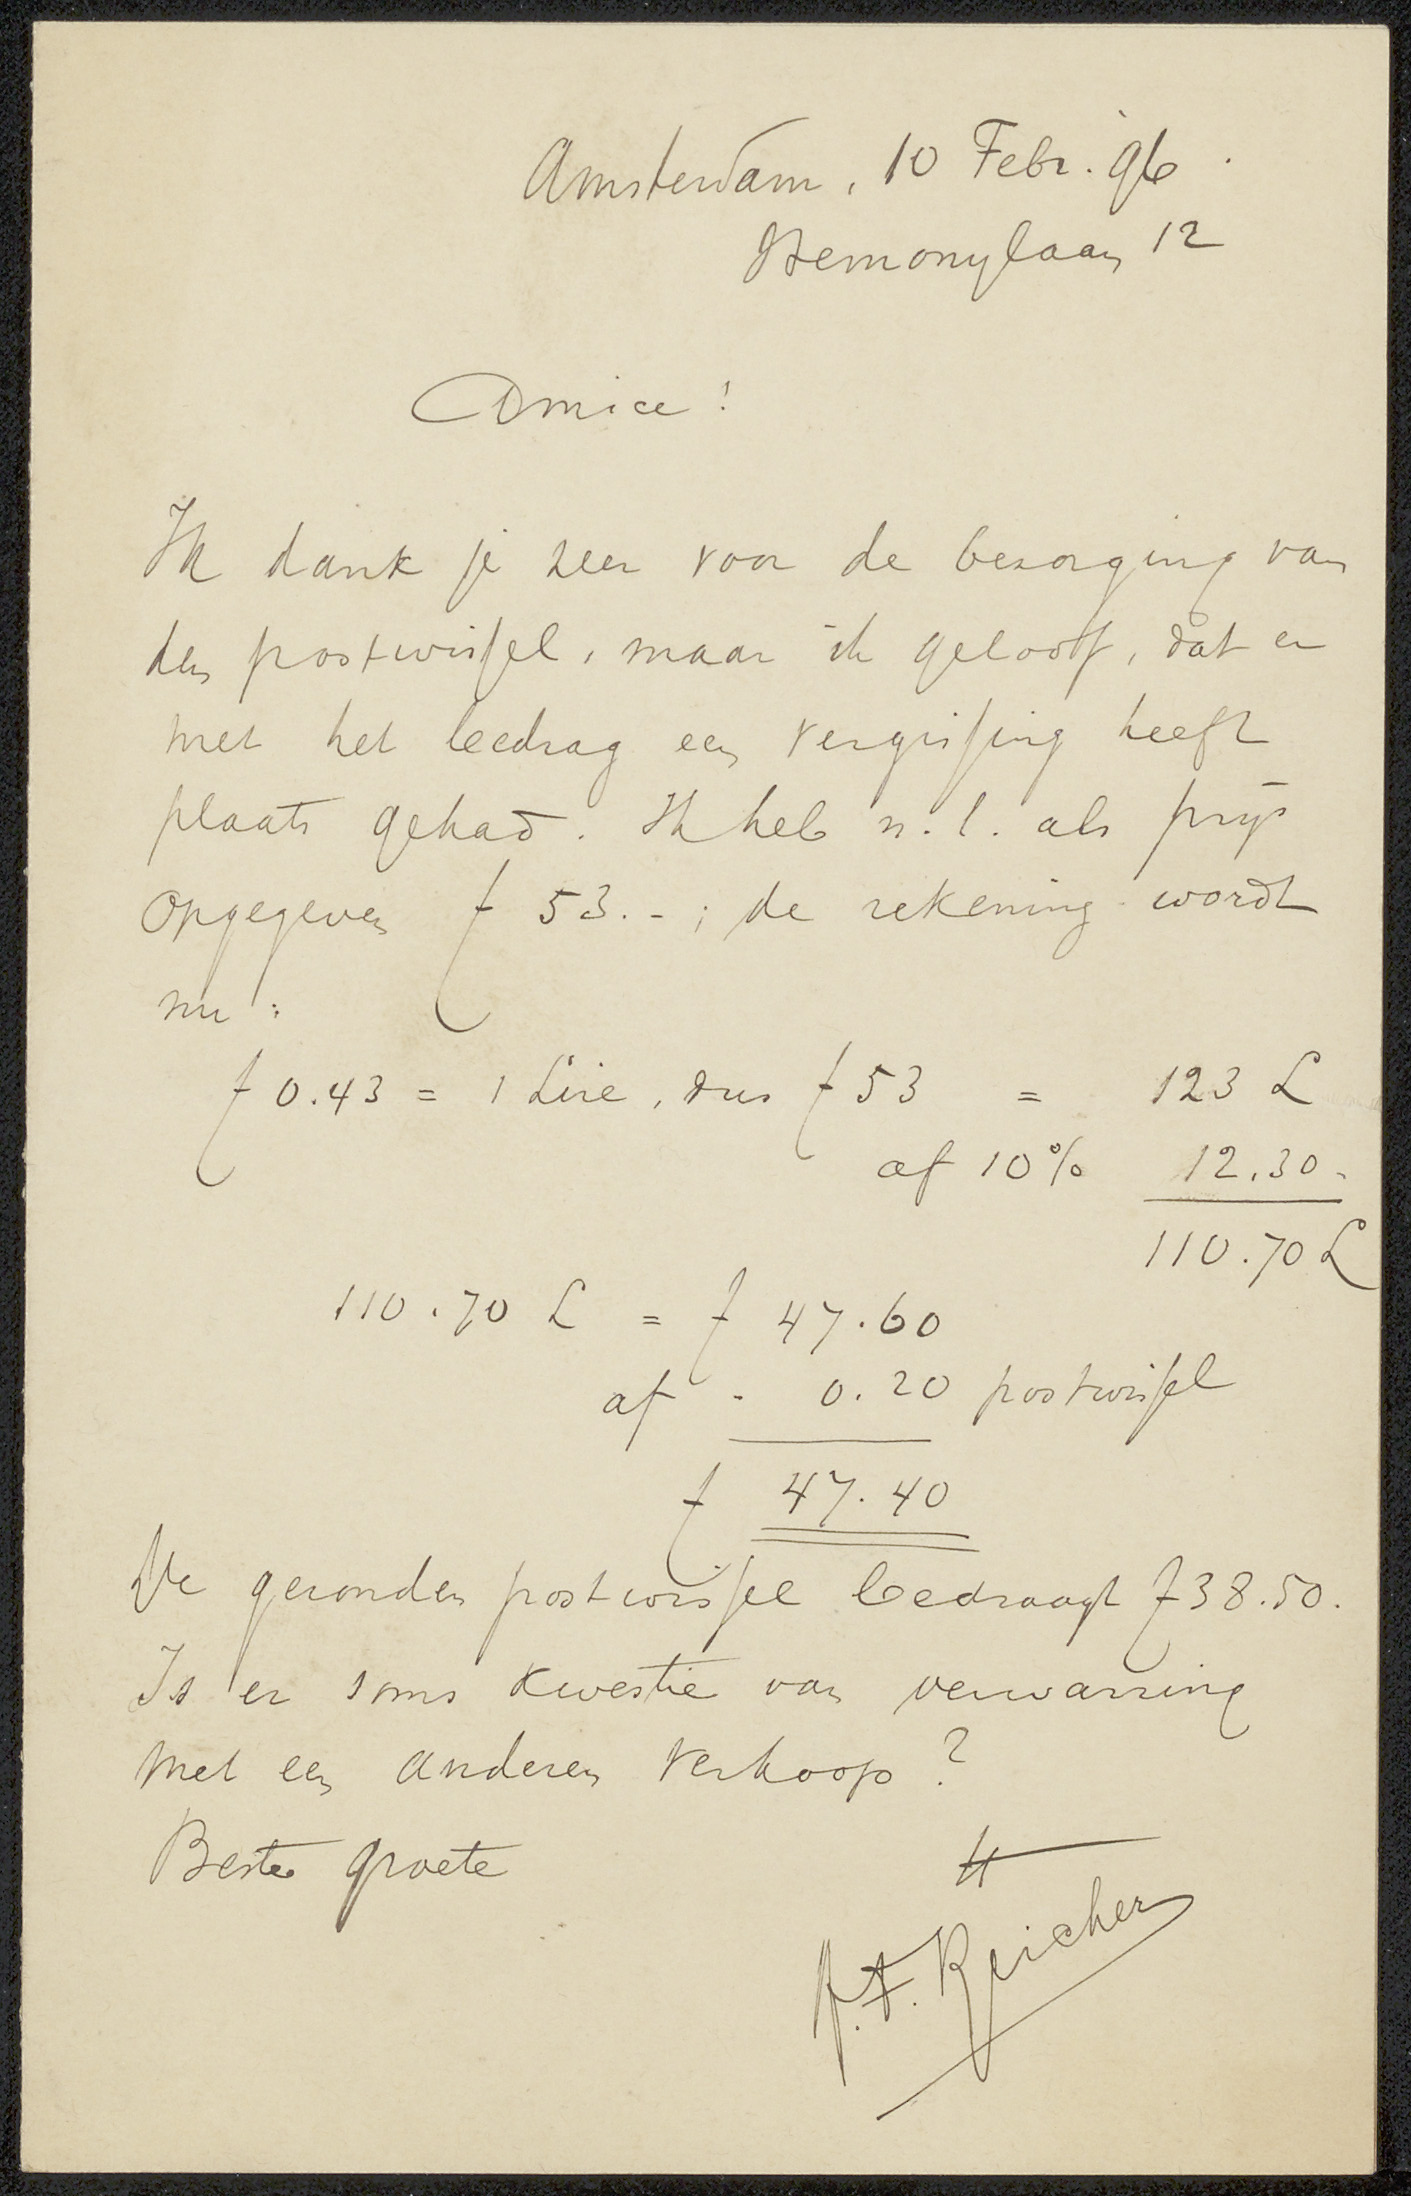 Amsterdam, 10 Febr. 96.
Hemonylaan 12
Amice!
Ik dank je zeer voor de bezorging van
den postwissel, maar ik geloof, dat er
met het bedrag een vergissing heeft
plaats gehad. Ik heb n.l. als prijs
opgegeven f 53.-; de rekening wordt
nu:
f 0.43 = 1 Lire, dus f 53 = 123 L
af 10% 12.30.
110.70 L
110.70 L = f 47.60
af - 0.20 postwissel
f 47.40
De gezonden postwissel bedraagt f 38.50.
Is er soms kwestie van verwarring
met een anderen verkoop?
Beste groete
tt
J. F. Reicher